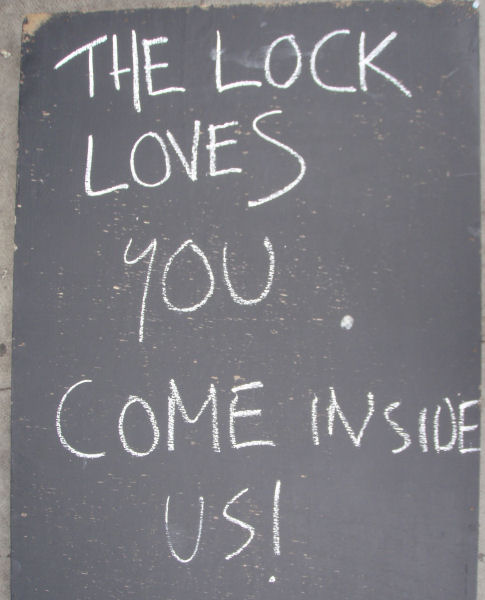 THE LOCK
LOVES
YOU.
COME INSIDE
US!